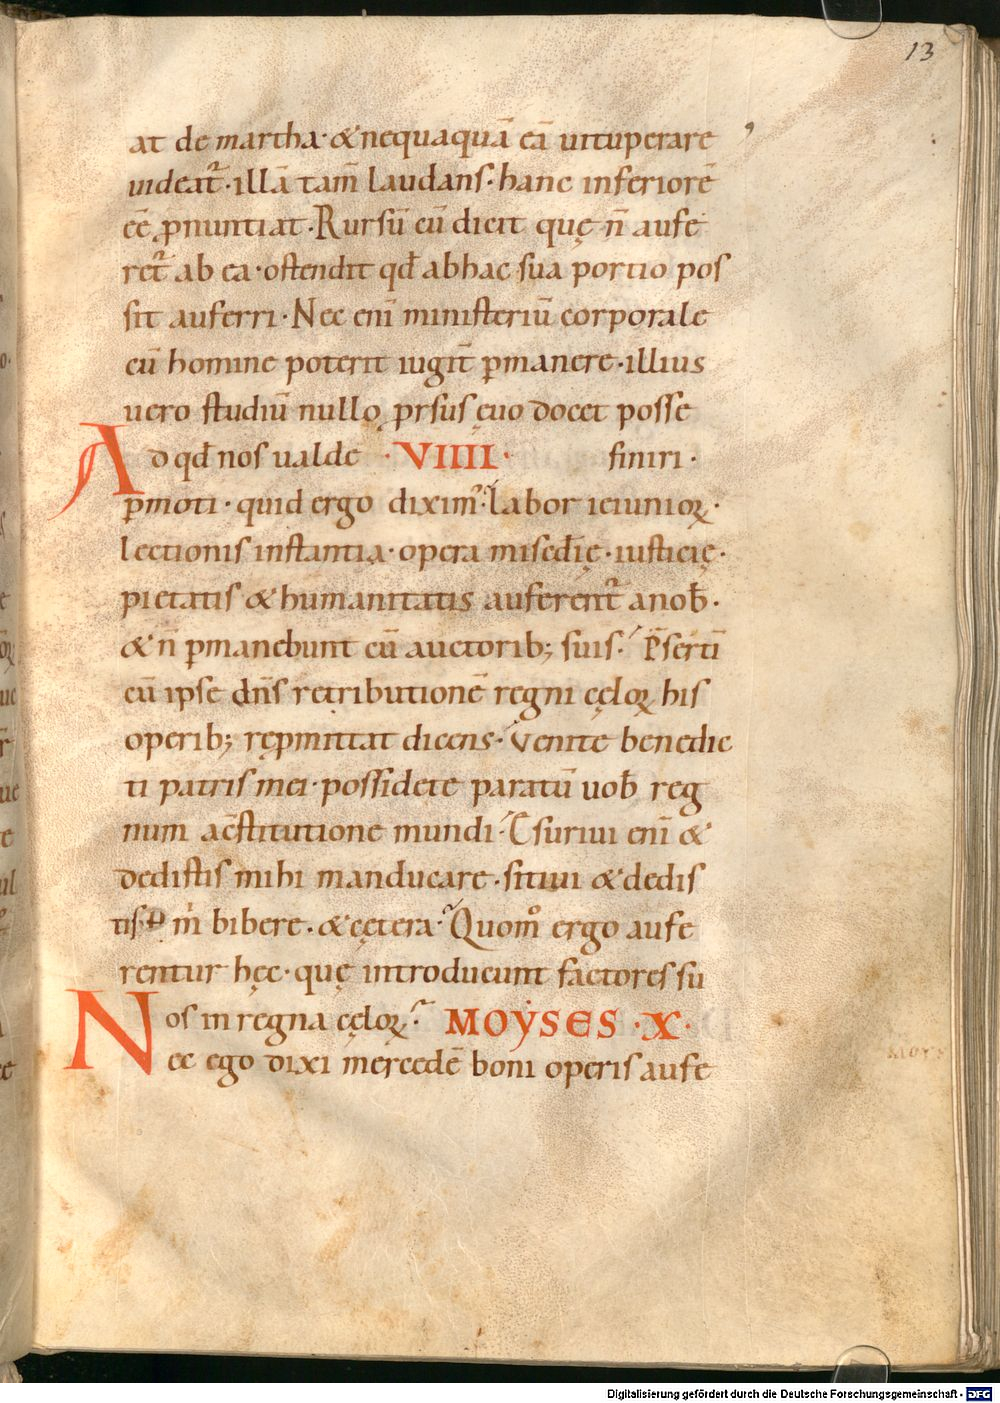 13
at de martha· &nequaquā eā uituperare
uideat᷑·illā tam̄ laudans·hanc inferiorē
eē ꝓnuntiat·Rursū cū dicit quę n̄ aufe
ret᷑ ab ea·ostendit qđ abhac sua portio pos
sit auferri·Nec eni̅ ministeriū corporale
cū homine poterit iugit̄ ꝑmanere·illius
uero studiū nullo prsus ęuo docet posse
Ad qđ nos ualde ·VIIII· finiri·
ꝑmoti·quid ergo dixim᷒·labor ieiunioꝝ·
lectionis instantia·opera misēdię·iusticię·
pietatis &humanitatis auferent᷑ anob̄·
&n̄ ꝑmanebunt cū auctorib; suis·P̄serti̅
cū ipse dn̄s retributionē regni cęloꝝ his
operib; repmittat dicens·Venite benedic
ti patris mei·possidete paratū uob̄ reg
num acs̄titutione mundi·Esuriui eni̅ &
dedistis mihi manducare·sitiui &dedis
tis· m̄ bibere·&cętera·Quom̊ ergo aufe
rentur hęc·quę introducunt factores su
os in regna cęloꝝ· MOYSES ·X·
Nec ego dixi mercedē boni operis aufe
Digitalisierung gefördert durch die Deutsche Forschungsgemeinschaft - DFG